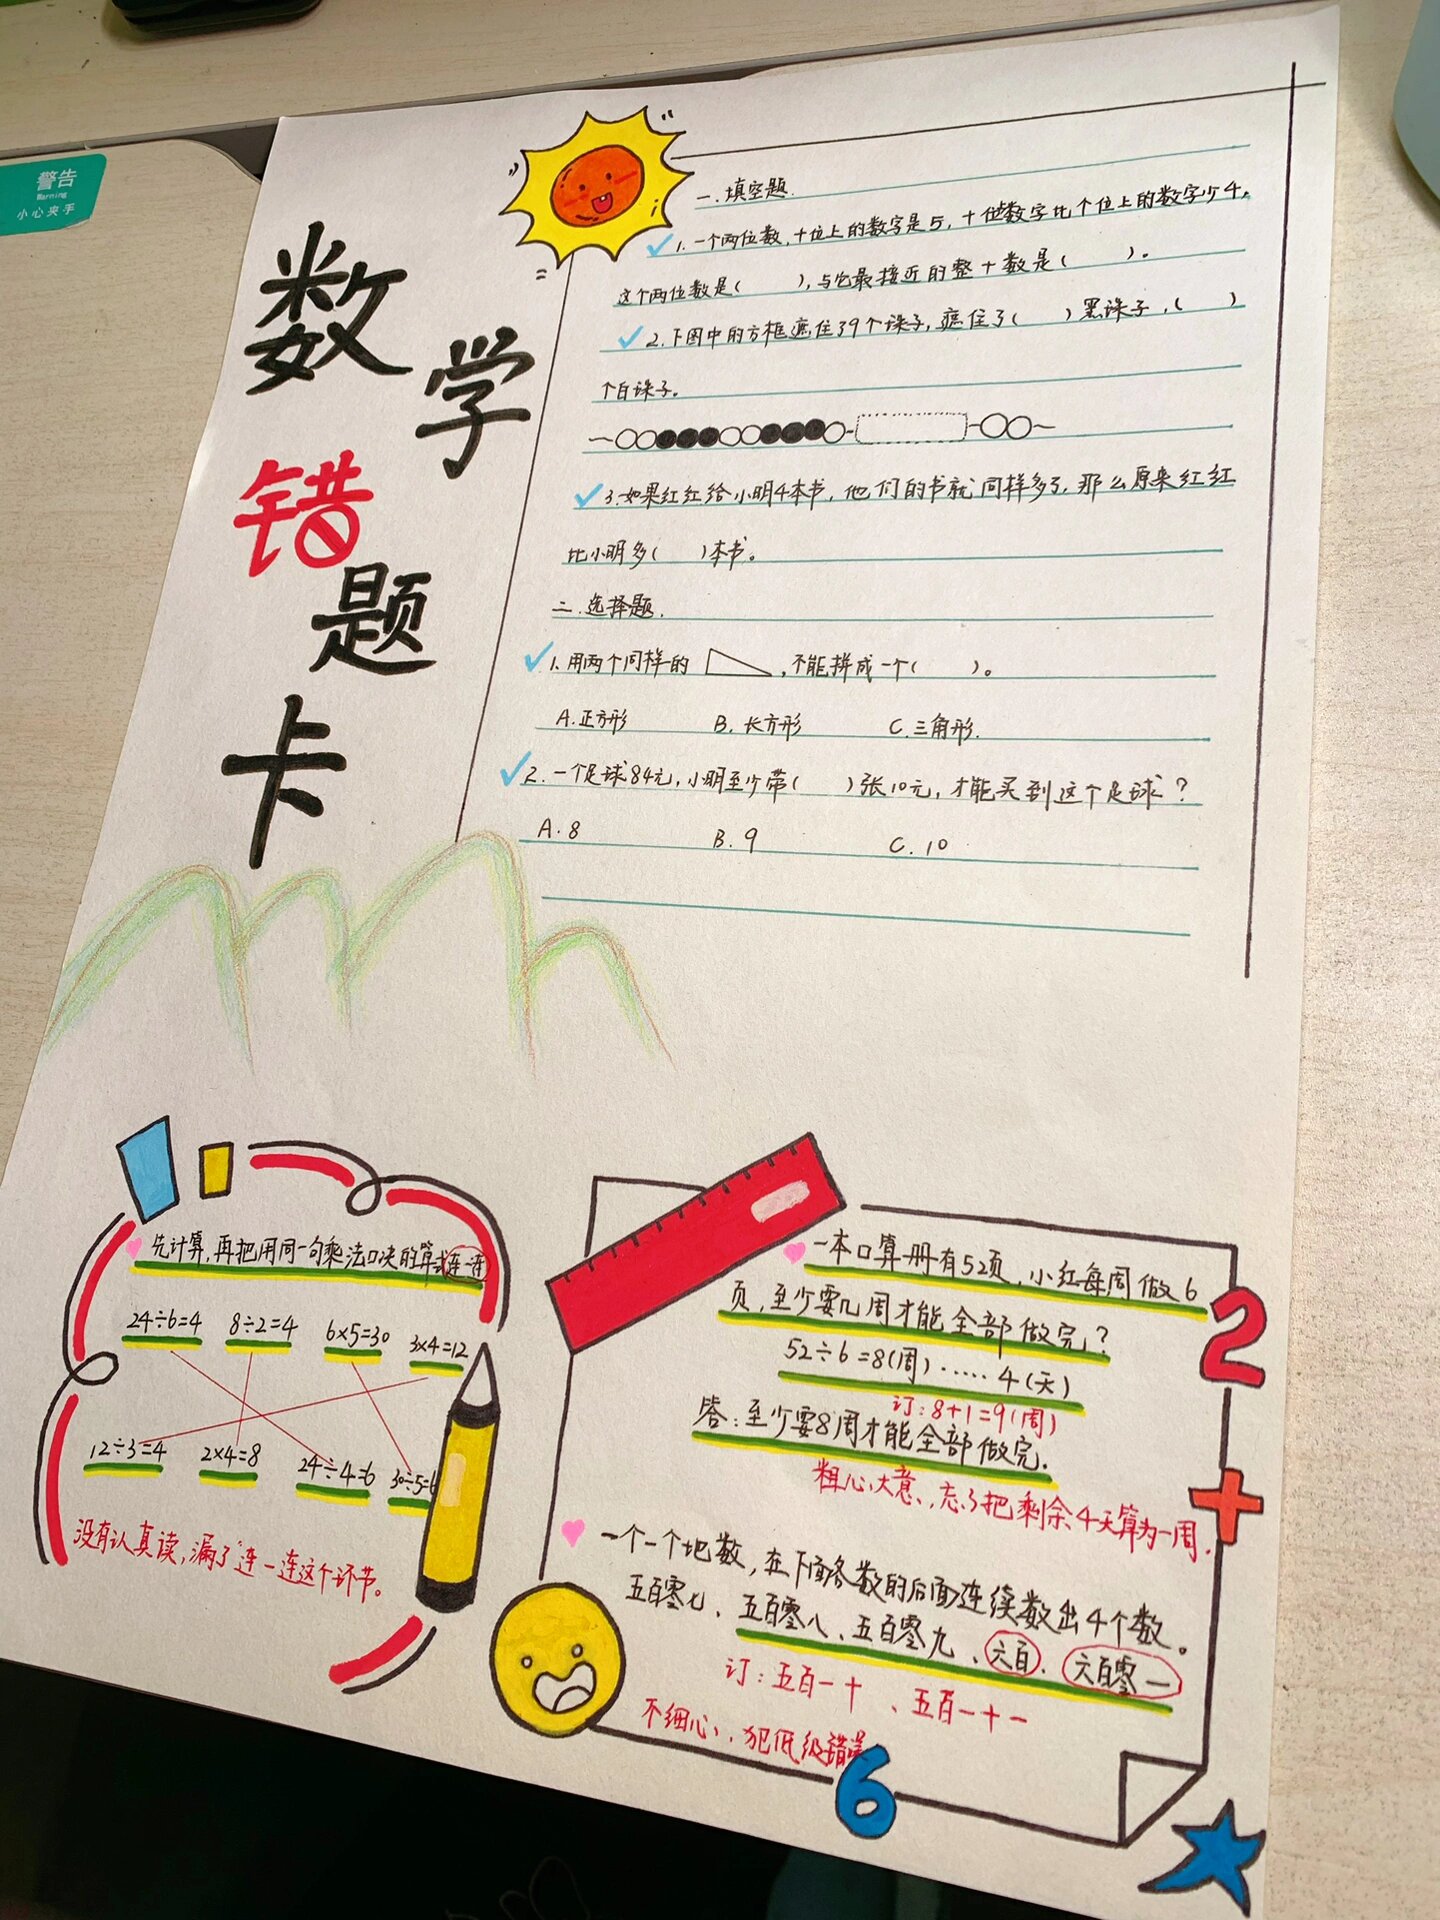 警告
Warning
小心夹手
数学
错题
卡
一.填空题.
1.一个两位数,十位上的数字是5,十位数字比个位上的数字少4,
这个两位数是(    ),与它最接近的整十数是(    )。
2.下图中的方框遮住了9个珠子,遮住了(    )黑珠子,(    )
个白珠子。
3.如果红红给小明4本书,他们的书就同样多了,那么原来红红
比小明多(    )本书。
二.选择题.
1.用两个同样的    ,不能拼成一个(    )。
A.正方形    B.长方形    C.三角形.
2.一个足球84元,小明至少带(    )张10元,才能买到这个足球?
A.8    B.9    C.10
先计算,再把用同一句乘法口决的算式连一连
24÷6=4    8÷2=4    6×5=30    3×4=12
12÷3=4    2×4=8    24÷4=6    30÷5=6
没有认真读,漏了连一连这个环节。
一本口算册有52页,小红每周做6
页,至少要几周才能全部做完?
52÷6=8(周)……4(天)
订:8+1=9(周)
答:至少要8周才能全部做完.
粗心大意,忘了把剩余4天算为一周.
一个一个地数,在下面各数的后面连续数出4个数。
五百零七、五百零八、五百零九、六百、六百零一
订:五百一十、五百一十一
不细心,犯低级错误
2
+
6